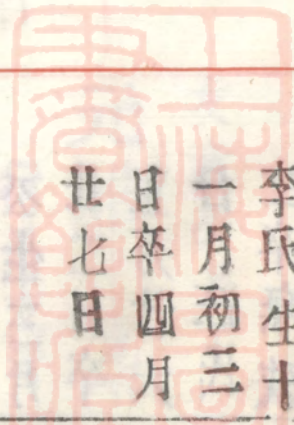 李氏生十
一月初三
日卒四月
廿七日